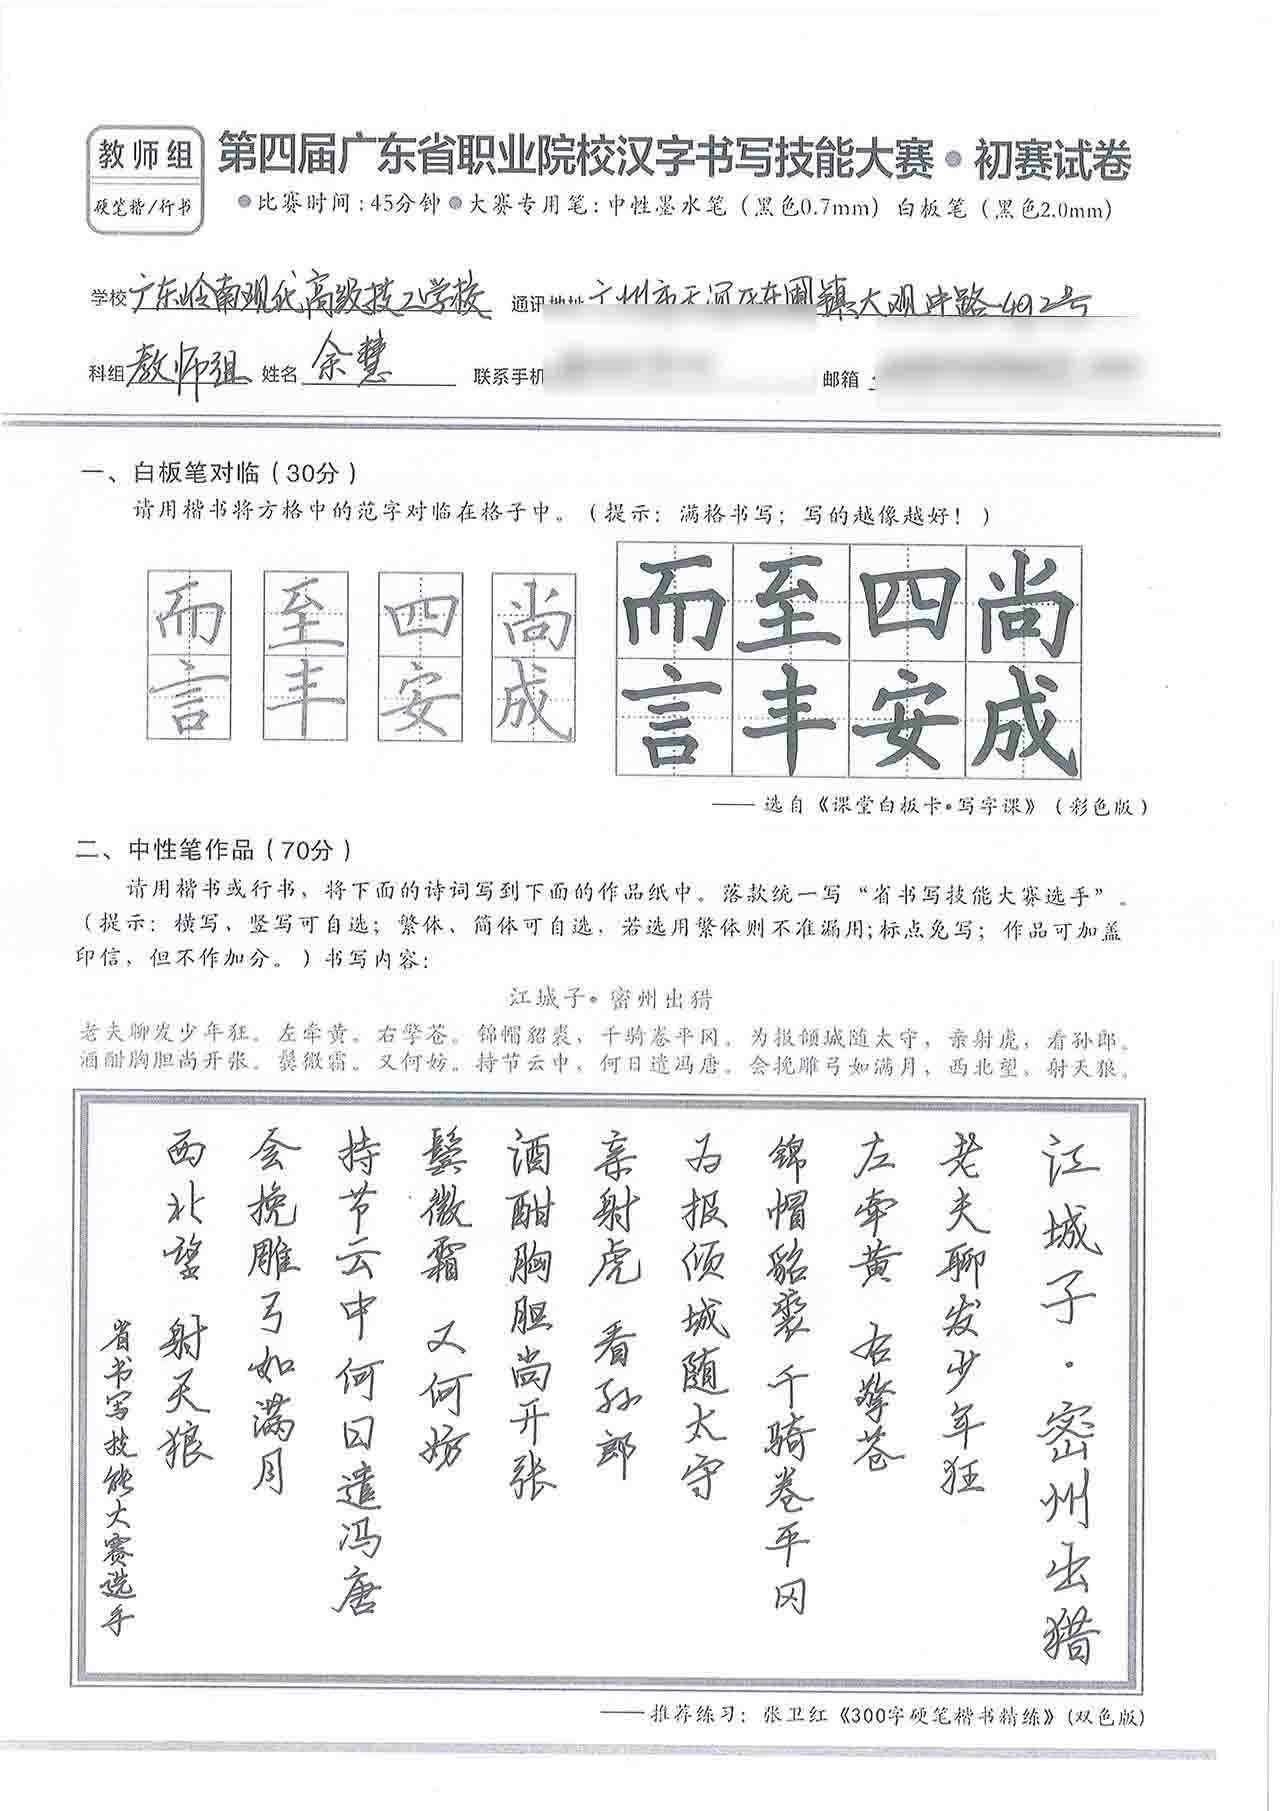 教师组
硬笔楷/行书
第四届广东省职业院校汉字书写技能大赛·初赛试卷
●比赛时间:45分钟●大赛专用笔:中性墨水笔(黑色0.7mm)白板笔(黑色2.0mm)
学校 广东岭南现代高级技工学校 通讯地址 广州市天河区东圃镇大观中路492号
科组 教师组 姓名 余慧 联系手机 邮箱
一、白板笔对临(30分)
请用楷书将方格中的范字对临在格子中。(提示:满格书写;写的越像越好!)
而 至 四 尚 而 至 四 尚
言 丰 安 成 言 丰 安 成
——选自《课堂白板卡·写字课》(彩色版)
二、中性笔作品(70分)
请用楷书或行书、将下面的诗词写到下面的作品纸中。落款统一写“省书写技能大赛选手”。
(提示:横写、竖写可自选;繁体、简体可自选,若选用繁体则不准漏用;标点免写;作品可加盖
印信,但不作加分。)书写内容:
江城子·密州出猎
老夫聊发少年狂。左牵黄。右擎苍。锦帽貂裘,千骑卷平冈。为报倾城随太守,亲射虎,看孙郎。
酒酣胸胆尚开张。鬓微霜。又何妨。持节云中,何日遣冯唐。会挽雕弓如满月,西北望,射天狼。
江城子·密州出猎
老夫聊发少年狂
左牵黄 右擎苍
锦帽貂裘 千骑卷平冈
为报倾城随太守
亲射虎 看孙郎
酒酣胸胆尚开张
鬓微霜 又何妨
持节云中 何日遣冯唐
会挽雕弓如满月
西北望 射天狼
省书写技能大赛选手
——推荐练习:张卫红《300字硬笔楷书精练》(双色版)